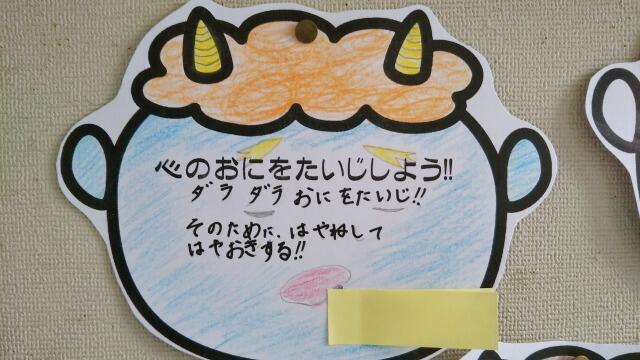 心のおにをたいじしよう!!
ダラダラおにをたいじ!!
そのために、はやねして
はやおきする!!